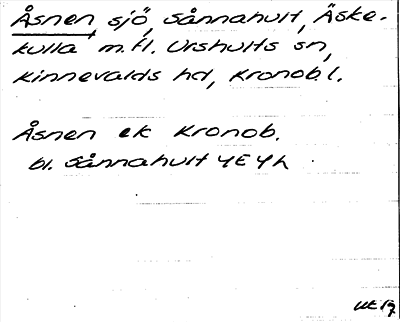 Åsnen sjö, Sånnahult, Äske-
kulla m.fl. Urshults sn,
Kinnevalds hd, Kronob. l.
Åsnen ek Kronob.
bl. Sånnahult 4E4h